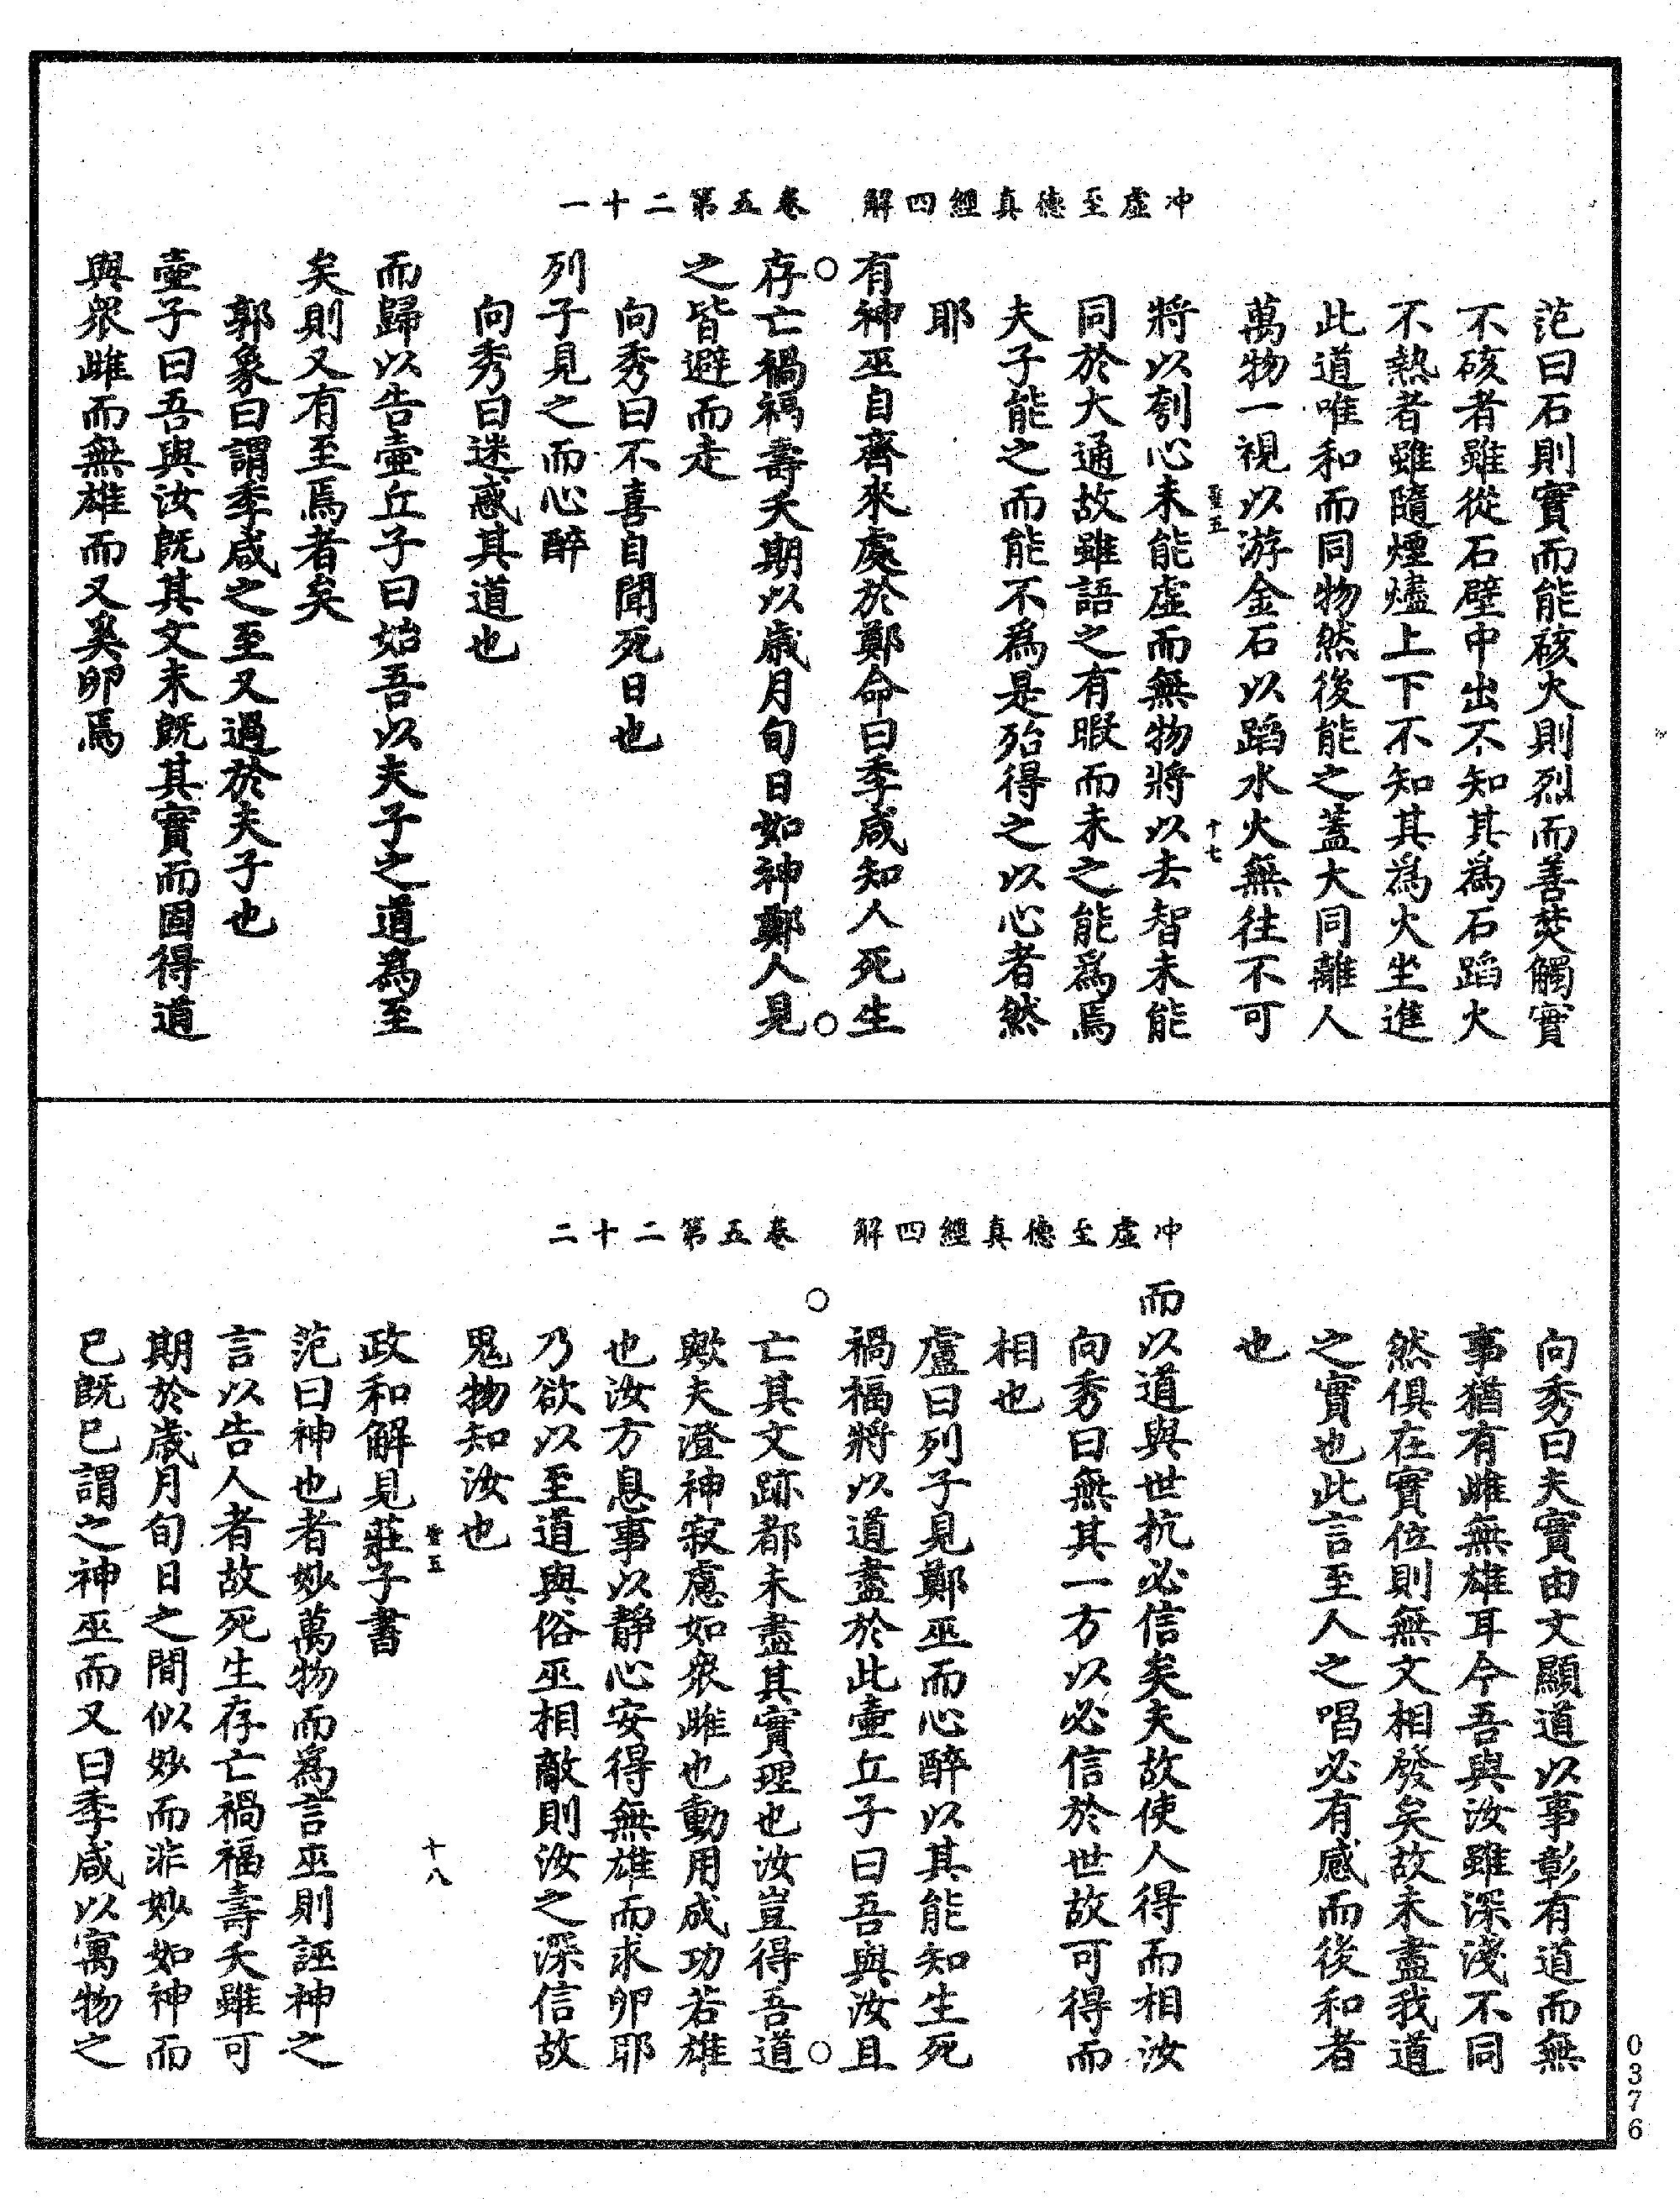 冲虛至德真經四解　卷五第二十一
范曰石則實而能硋火則烈而善焚觸實
不硋者雖從石壁中出不知其爲石蹈火
不熱者雖隨煙燼上下不知其爲火坐進
此道唯和而同物然後能之蓋大同離人
萬物一視以游金石以蹈水火無往不可
聖五　十七
將以刳心未能虛而無物將以去智未能
同於大通故雖語之有暇而未之能爲焉
夫子能之而能不爲是殆得之以心者然
耶
有神巫自齊來處於鄭命曰季咸知人死生
存亡禍福壽夭期以歲月旬日如神鄭人見
之皆避而走
向秀曰不喜自聞死日也
列子見之而心醉
向秀曰迷惑其道也
而歸以告壺丘子曰始吾以夫子之道為至
矣則又有至焉者矣
郭象曰謂季咸之至又過於夫子也
壺子曰吾與汝旣其文未旣其實而固得道
與眾雌而無雄而又奚卵焉
冲虛至德真經四解　卷五第二十二
向秀曰夫實由文顯道以事彰有道而無
事猶有雌無雄耳今吾與汝雖深淺不同
然俱在實位則無文相發矣故未盡我道
之實也此言至人之唱必有感而後和者
也
而以道與世抗必信矣夫故使人得而相汝
向秀曰無其一方以必信於世故可得而
相也
盧曰列子見鄭巫而心醉以其能知生死
禍福將以道盡於此壺丘子曰吾與汝且
亡其文跡都未盡其實理也汝豈得吾道
歟夫澄神寂慮如眾雌也動用成功若雄
也汝方息事以靜心安得無雄而求卵耶
乃欲以至道與俗巫相敵則汝之深信故
鬼物知汝也
聖五　十八
政和解見莊子書
范曰神也者妙萬物而為言巫則誣神之
言以告人者故死生存亡禍福壽夭雖可
期於歲月旬日之間似妙而非妙如神而
已旣已謂之神巫而又曰季咸以寓物之
0376